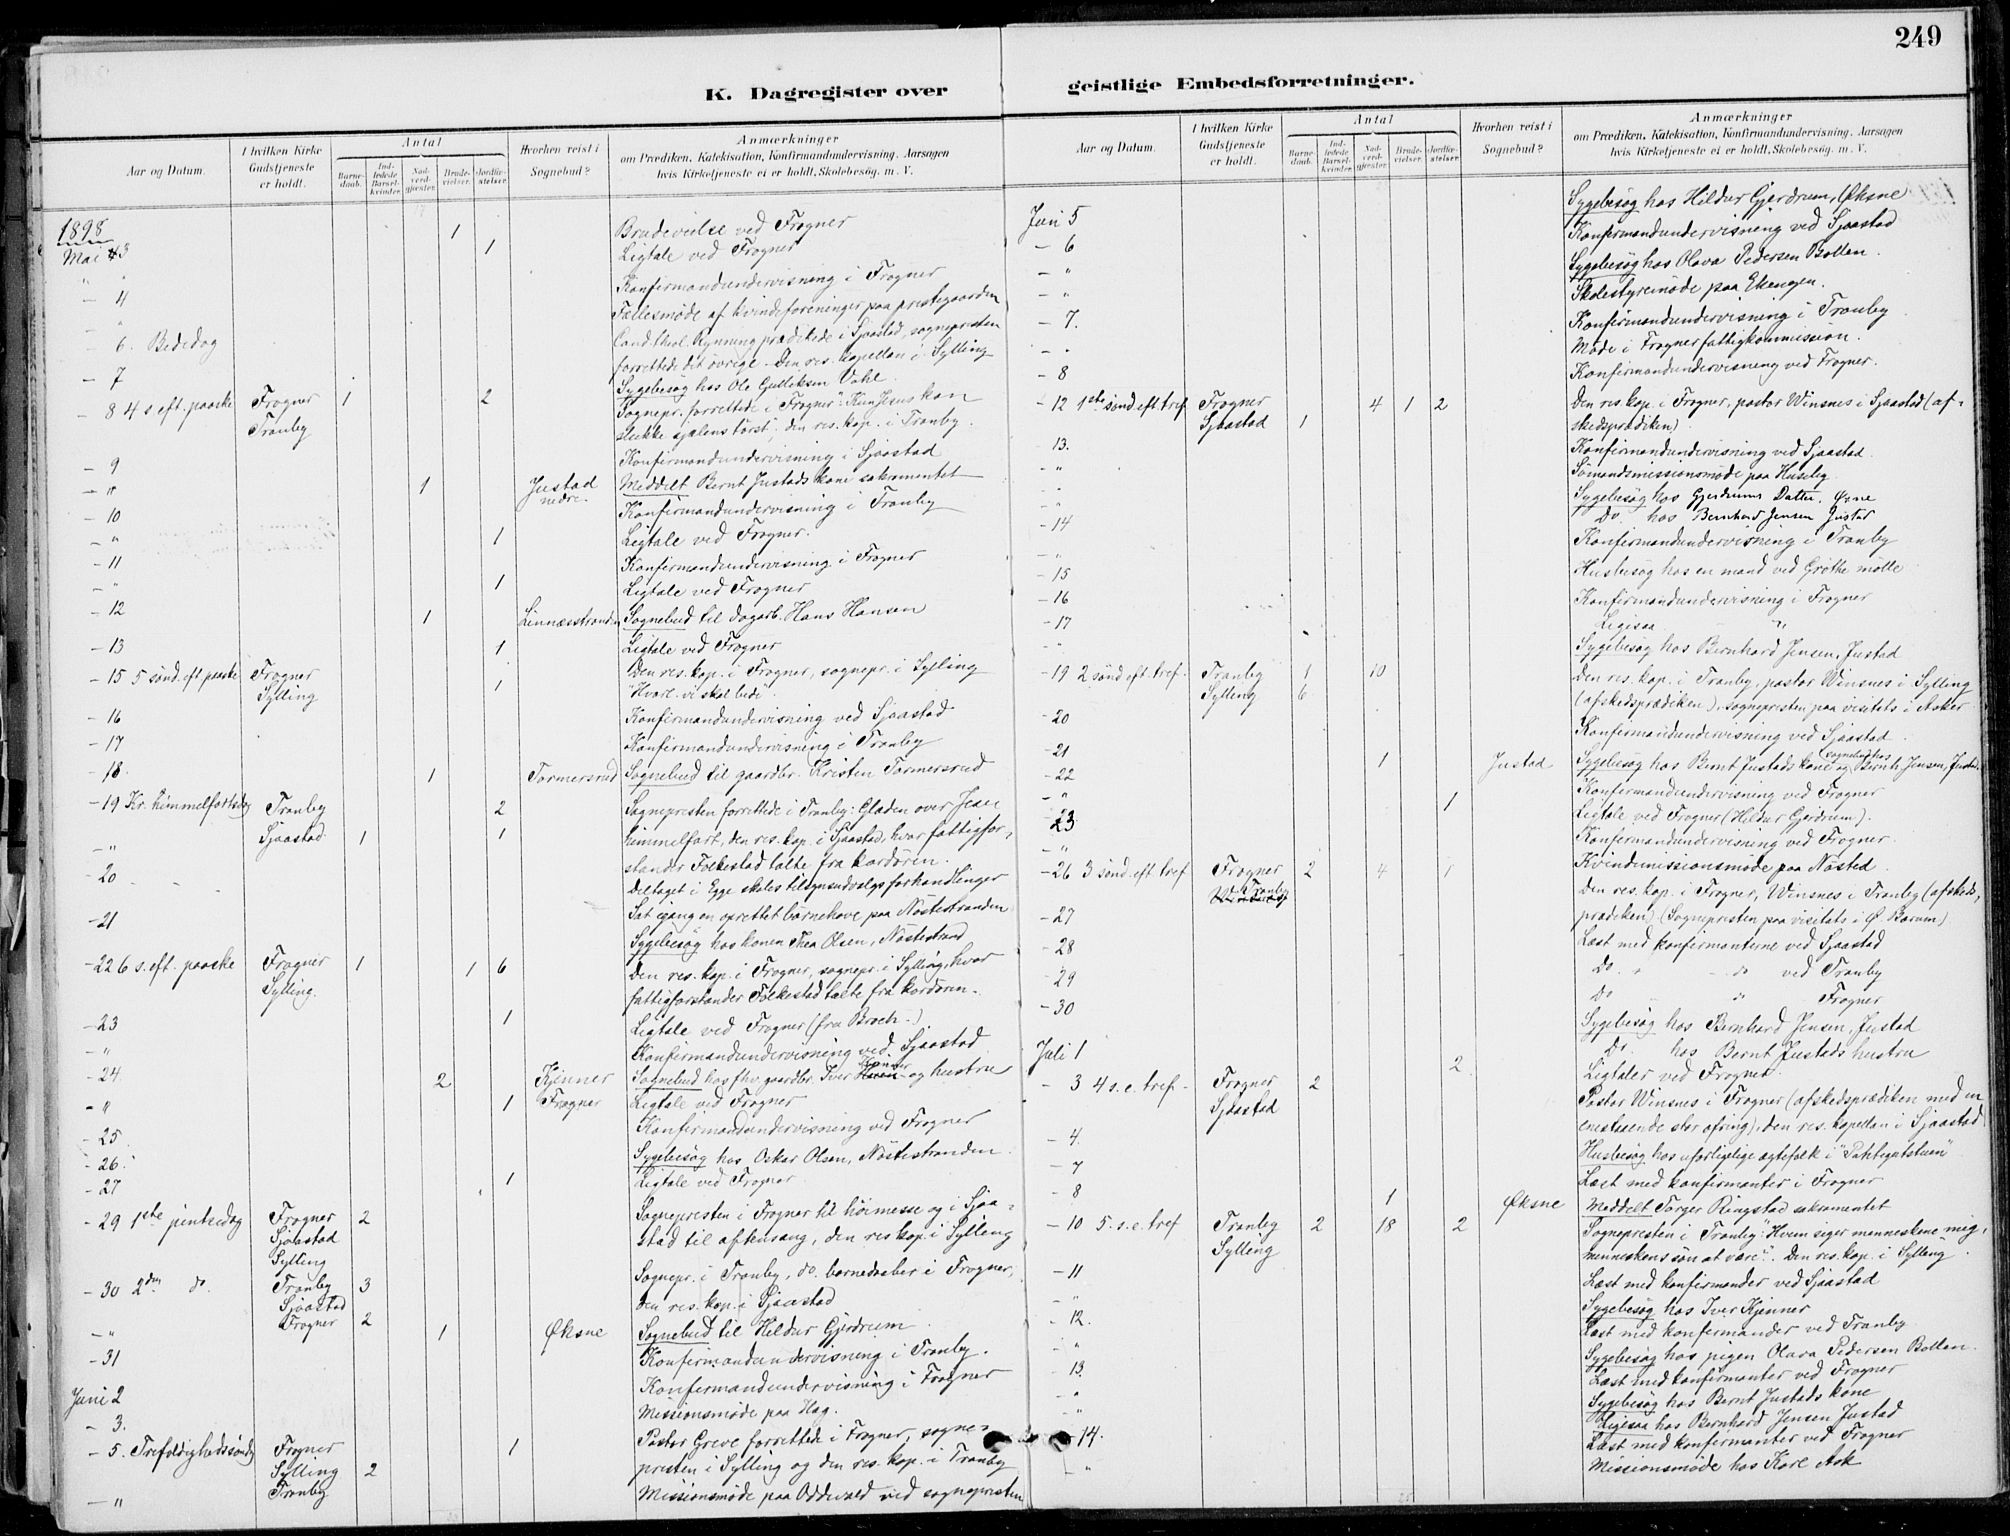 249
K. Dagregister over geistlige Embedsforretninger.
Aar og Datum.
I hvilken Kirke Gudstjeneste er holdt.
Antal
Barnedaab.
Indledede Barselkvinder.
Nadverdgjæster.
Brudevielser.
Jordfæstelser.
Hvorhen reist i Sognebud?
Anmærkninger
om Prædiken, Katekisation, Konfirmandundervisning, Aarsagen
hvis Kirketjeneste ei er holdt, Skolebesøg, m. V.
1898
Mai 3 1 Brudevielse ved Frogner
" 1 Ligtale ved Frogner
- 4 Konfirmandundervisning i Frogner
- " Fællesmøde af kvindeforeninger paa prestegaarden
- 6. Bededag Cand. theol. Rynning prædikede i Sjaastad, sognepresten
forrettede det øvrige. Den res. kapellan i Sylling
- 7 Sygebesøg hos Ole Gulliksen Dahl.
- 8 4 s. eft. paaske Frogner 1 2 Sognepr. forrettede i Frogner: Kun Jesus kan
Tranby slukke sjælens tørst, den res. kap. i Tranby.
- 9 Konfirmandundervisning i Sjaastad
- " 1 Justad nedre. Meddelt Bernt Justads kone sakramentet
- 10 Konfirmandundervisning i Tranby
- " 1 Ligtale ved Frogner.
- 11 Konfirmandundervisning i Frogner
" 1 Ligtale ved Frogner
- 12 1 Linnæsstranden Sognebud til dagarb. Hans Hansen
- 13 1 Ligtale ved Frogner
- 15 5 sønd. eft paaske Frogner Den res. kap. i Frogner, sognepr. i Sylling
Sylling 1 "Hvorl. vi skal bede".
- 16 Konfirmandundervisning ved Sjaastad
- 17 Konfirmandundervisning i Tranby
- 18. 1 Tormersrud Sognebud til gaardbr. Kristen Tormersrud
- 19 Kr. himmelfartsdag Tranby 2 Sognepresten forrettede i Tranby: Glæden over Jesu
- " Sjaastad 1 1 himmelfart, den res. kap. i Sjaastad, hvor fattigfor-
stander Folkestad talte fra kordøren.
- 20 Deltaget i Egge skoles tilsynsudvalgs forhandlinger
- 21 Sat igang en oprettet børnehave paa Nøstestranden
Sygebesøg hos konen Thea Olsen, Nøstestrand
- 22 6 s. eft. paaske Frogner 1 1 6 Den res. kap. i Frogner, sognepr. i Sylling, hvor
Sylling. fattigforstander Folkestad talte fra kordøren.
- 23 1 Ligtale ved Frogner (fra Broch-)
- " Konfirmandundervisning ved Sjaastad
- 24 2 Kjenner Sognebud hos fhv. gaardbr. Iver Kjenner og hustru
- " 1 Frogner Ligtale ved Frogner
- 25. Konfirmandundervisning ved Frogner
- 26. Sygebesøg hos Oskar Olsen, Nøstestranden.
- 27 1 Ligtale ved Frogner
- 29 1ste pintsedag Frogner 2 Sognepresten i Frogner til høimesse og i Sjaa-
Sjaastad stad til aftensang, den res kap. i Sylling
Sylling
- 30 2den do. Tranby 3 Sognepr. i Tranby, do. barnedaaber i Frogner,
Sjaastad den res. kap. i Sjaastad
- " Frogner 2 1 Øksne Sognebud til Heldur Gjerdrum
- 31 Konfirmandundervisning i Tranby.
Juni 2 Konfirmandundervisning i Frogner
- 3. Missionsmøde paa Hag.
- 5. Trefoldighedssøndag Frogner 1 Pastor Greve forrettede i Frogner, sogne-
Sylling 2 presten i Sylling og den res. kap. i Tranby
- " Tranby Missionsmøde paa Oddevald ved sognepresten
Aar og Datum.
I hvilken Kirke Gudstjeneste er holdt.
Antal
Barnedaab.
Indledede Barselkvinder.
Nadverdgjæster.
Brudevielser.
Jordfæstelser.
Hvorhen reist i Sognebud?
Anmærkninger
om Prædiken, Katekisation, Konfirmandundervisning, Aarsagen
hvis Kirketjeneste ei er holdt, Skolebesøg, m. V.
Juni 5 Sygebesøg hos Hildur Gjerdrum, Øksne
- 6 Konfirmandundervisning ved Sjaastad
- " Sygebesøg hos Olava Pedersen Bollen.
- " Skolestyremøde paa Ekengen.
- 7. Konfirmandundervisning i Tranby
- " Møde i Frogner fattigkommission.
- 8 Konfirmandundervisning ved Frogner.
- 12 1ste sønd. eft tref. Frogner 4 1 2 Den res. kap. i Frogner, pastor Winsnes i Sjaastad (af-
Sjaastad 1 skedsprædiken)
- 13. Konfirmandundervisning ved Sjaastad.
- " Sømandsmissionsmøde paa Huseby
- " Sygebesøg hos Gjerdrums Datter, Øxne
- " Do. hos Bernhard Jensen Justad
- 14 Konfirmandundervisning i Tranby
- " Husbesøg hos en mand ved Grøthe mølle
- 15 Konfirmandundervisning i Frogner
- 16 Ligesaa "
- 17 Sygebesøg hos Bernhard Jensen, Justad
- 19 2 sønd eft. tref. Tranby 1 10 Den res. kap. i Tranby, pastor Winsnes i Sylling
Sylling 6 (afskedsprædiken), sognepresten paa visitats i Asker
- 20 Konfirmandundervisning ved Sjaastad
- 21 1 Justad Sygebesøg hos Bernt Justads kone og sognebud hos Bernh. Jensen, Justad
- 22 Konfirmandundervisning ved Frogner
- " 1 Ligtale ved Frogner (Hildur Gjerdrum).
- 23 Konfirmandundervisning ved Frogner.
- " Kvindemissionsmøde paa Nøsted
- 26 3 sønd. eft. tref Frogner 2 4 1 Den res. kap. i Frogner, Winsnes i Tranby (afskeds-
Tranby prædiken) (Sognepresten paa visitats i Ø. Bærum)
- 27 Læst med konfirmanterne ved Sjaastad
- 28 Do. " do ved Tranby
- 29 Do " Frogner
- 30 Sygebesøg hos Bernhard Jensen, Justad
Juli 1 Do. hos Bernt Justads hustru
2 Ligtaler ved Frogner
- 3 4 s. e. tref. Frogner 2 Pastor Winsnes i Frogner (afskedsprædiken med en
Sjaastad enestaaende stor ofring), den res. kapellan i Sjaastad
- 4. Husbesøg hos uforligelige ægtefolk i "Pahtegutstuen"
- 7 Læst med konfirmanter i Frogner
- 8 1 Øksne Meddelt Torger Ringstad sakramentet
- 10 5. s. e. tref Tranby 2 18 2 Sognepresten i Tranby: "Hvem siger menneskene mig,
Sylling menneskens søn at være". Den res. kap. i Sylling.
- 11 Læst med konfirmander ved Sjaastad
- " Sygebesøg hos Iver Kjenner
- 12. Læst med konfirmander ved Tranby
- " Sygebesøg hos pigen Olava Pedersen Bollen.
- 13. Læst med konfirmanter ved Frogner
- " Sygebesøg hos Bernt Justads kone
- " Ligesaa hos Bernhard Jensen Justad
- 14. Læst med konfirmanter ved Frogner
- " Missionsmøde hos Karl Ask